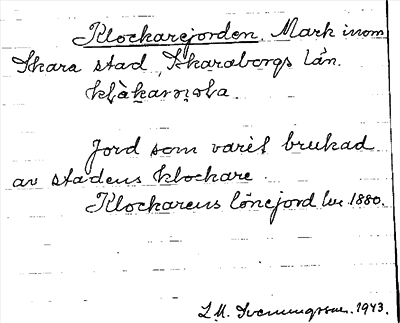 Klockarejorden. Mark inom
Skara stad, Skaraborgs län.
Jord som varit brukad
av stadens klockare.
Klockarens lönejord 1880.
L.M. Svenungsson. 1943.